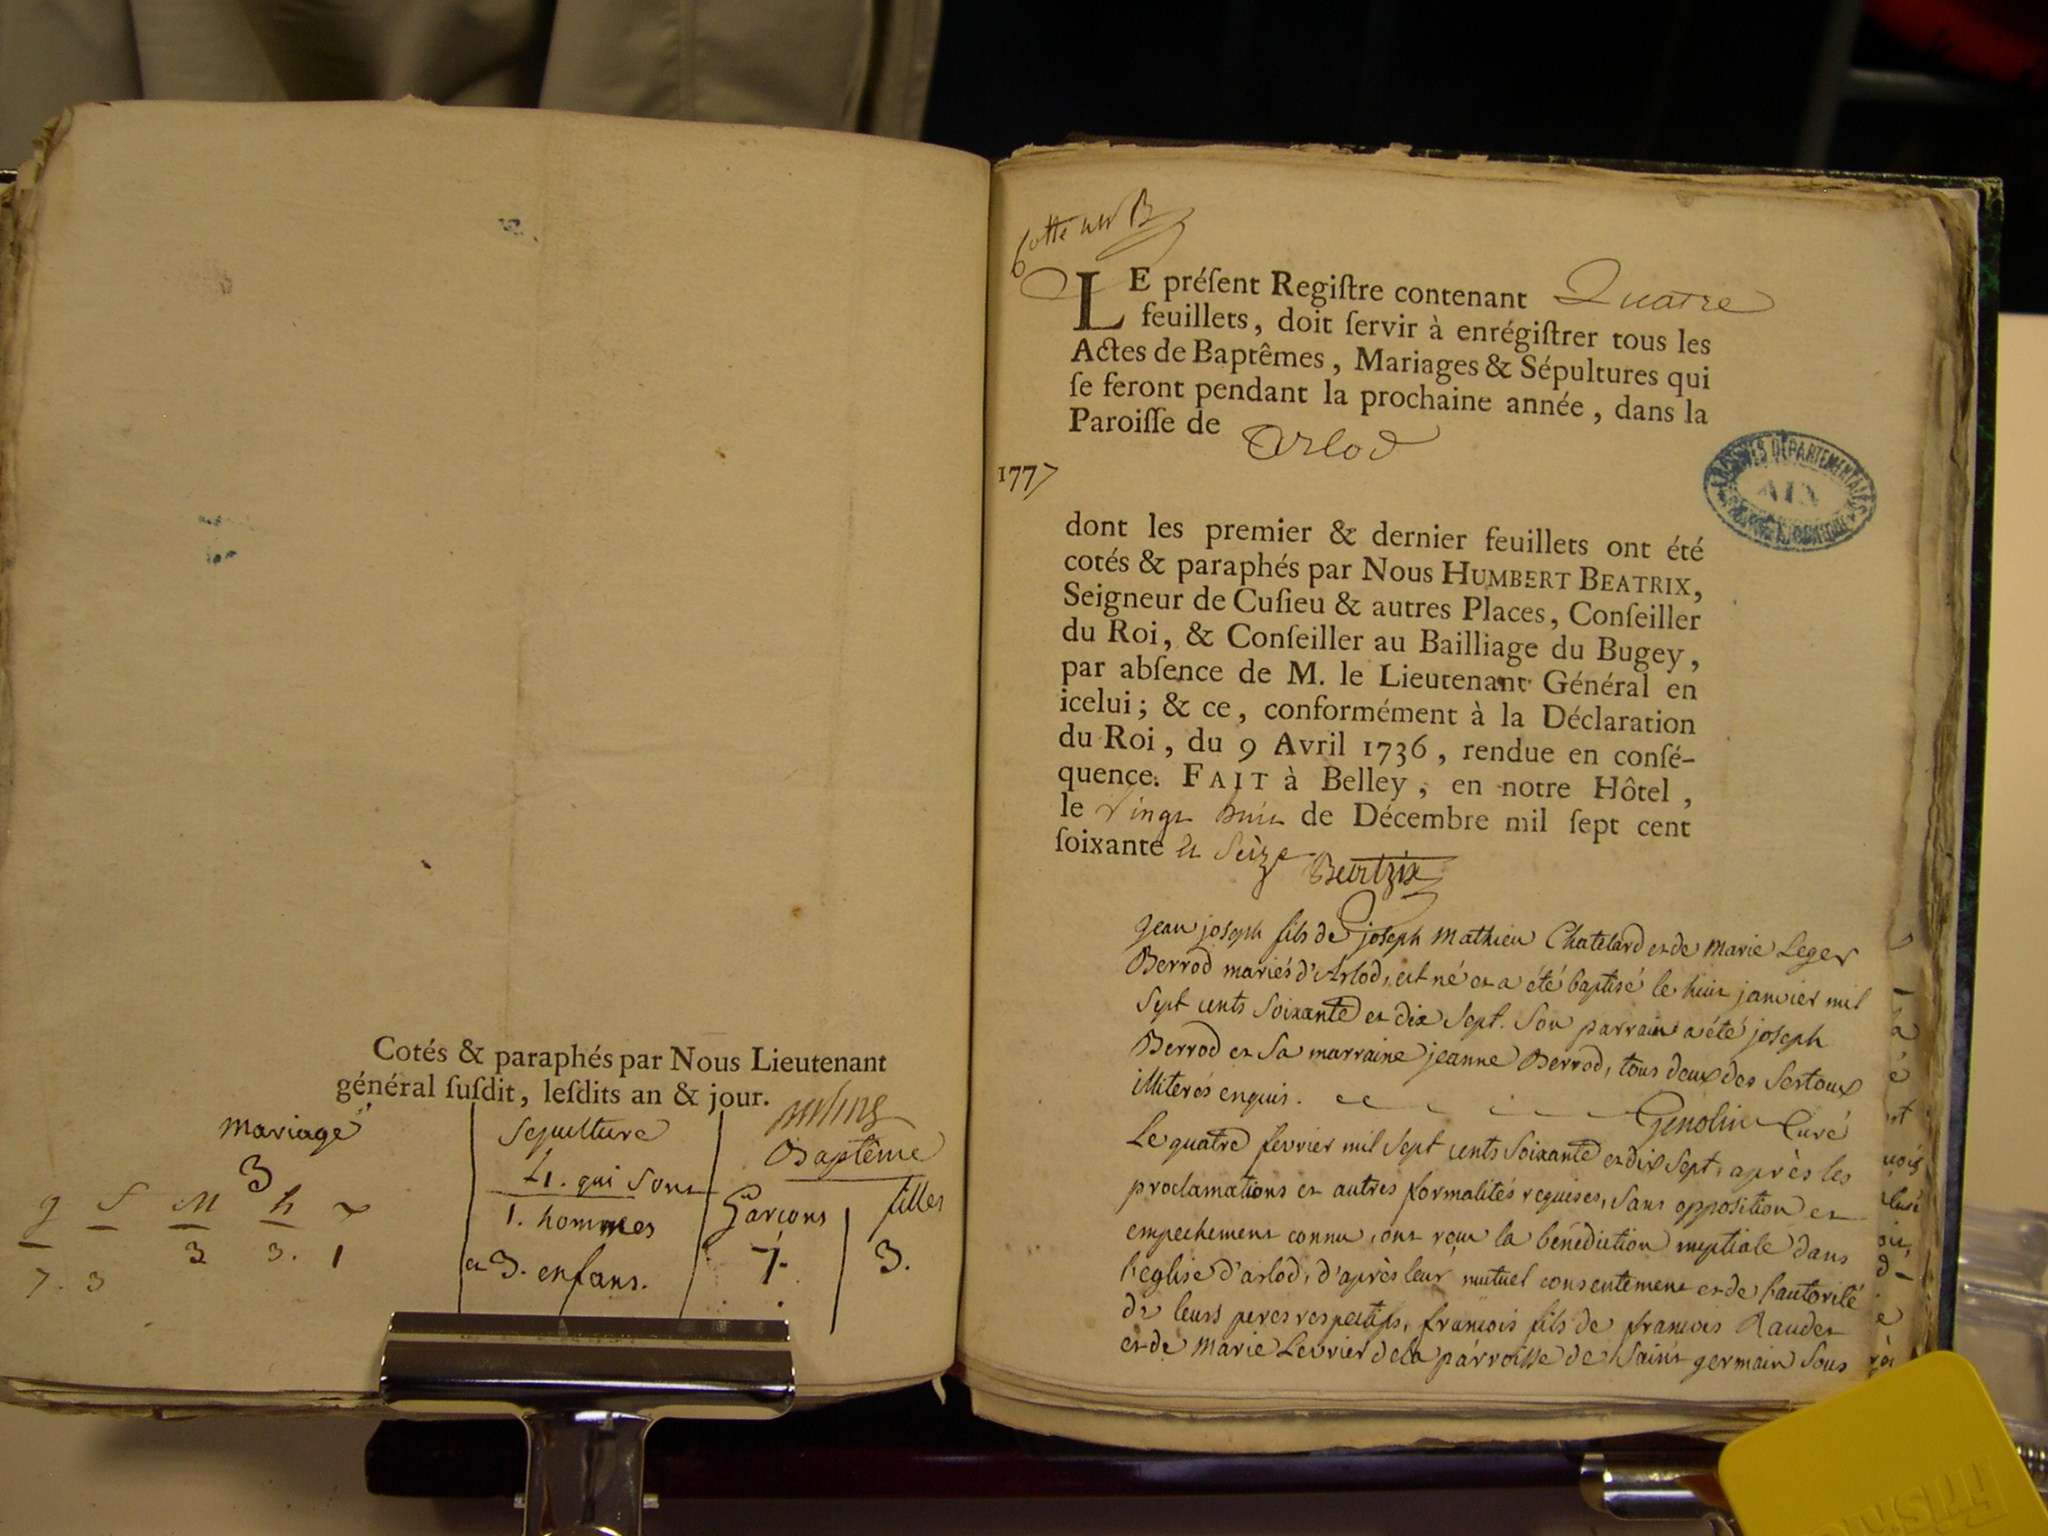 Cotés & paraphés par Nous Lieutenant
général ſuſdit, leſdits an & jour.
mariage
3
g f M h
7. 3 3 3. 1
sepulture
4. qui sont
1. hommes
et 3. enfans.
Baptême
Garçons filles
7. 3.
LE préſent Regiſtre contenant Quatre
feuillets, doit ſervir à enrégiſtrer tous les
Actes de Baptêmes, Mariages & Sépultures qui
ſe feront pendant la prochaine année, dans la
Paroiſſe de Arlod
1777
ARCHIVES DÉPARTEMENTALES
AIN
dont les premier & dernier feuillets ont été
cotés & paraphés par Nous HUMBERT BEATRIX,
Seigneur de Cuſieu & autres Places, Conſeiller
du Roi, & Conſeiller au Bailliage du Bugey,
par abſence de M. le Lieutenant Général en
icelui; & ce, conformément à la Déclaration
du Roi, du 9 Avril 1736, rendue en conſé-
quence. FAIT à Belley, en notre Hôtel,
le vingt huit de Décembre mil ſept cent
ſoixante et seize
Beatrix
jean joseph fils de joseph mathieu Chatelard et de marie Leger
Berrod mariés d'Arlod, est né et a été baptisé le huit janvier mil
sept cents soixante et dix sept. son parrain a été joseph
Berrod et sa marraine jeanne Berrod, tous deux des sertoux
illiterés enquis. Genolin Curé
Le quatre fevrier mil sept cents soixante et dix sept, après les
proclamations et autres formalités requises, sans opposition et
empechement connu, ont reçu la bénédiction nuptiale dans
l'eglise d'arlod, d'après leur mutuel consentement et de l'autorité
de leurs peres respectifs, françois fils de françois Raudet
et de marie Levrier de la parroisse de saint germain sous